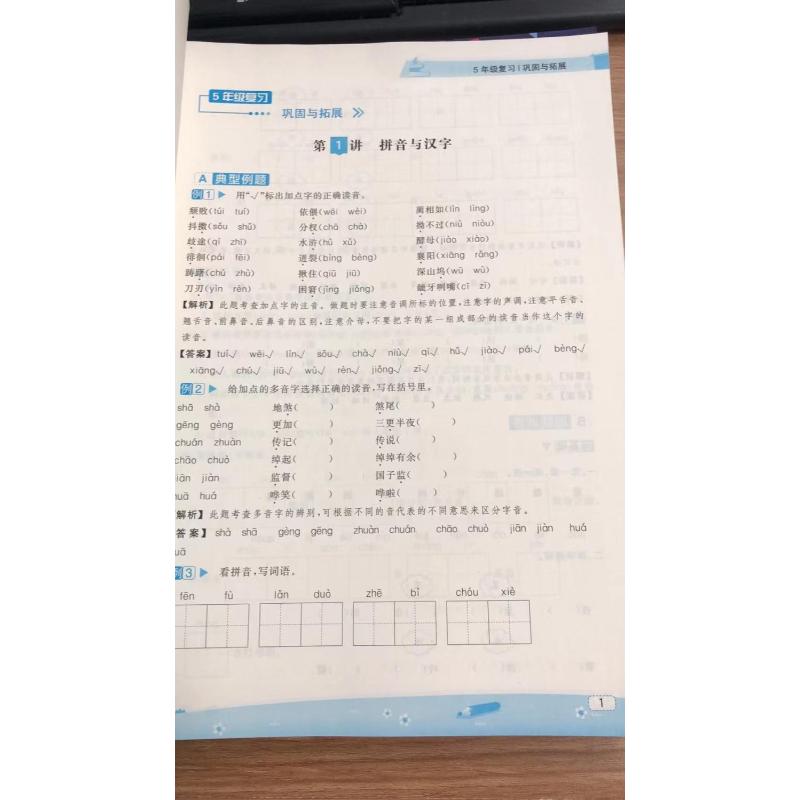 5年级复习|巩固与拓展
5年级复习
巩固与拓展
第1讲 拼音与汉字
A 典型例题
例1 用“√”标出加点字的正确读音。
颓败(túi tuí) 依偎(wēi wèi) 蔺相如(lìn lìng)
抖擞(sǒu shǔ) 分杈(chā chà) 拗不过(niù niòu)
歧途(qí zhī) 水浒(hǔ xǔ) 酵母(jiào xiào)
徘徊(pái fēi) 迸裂(bìng bèng) 襄阳(xiāng rǎng)
踌躇(chú zhù) 揪住(qiū jiū) 深山坞(wū wù)
刀刃(yìn rèn) 困窘(jǐng jiǒng) 龇牙咧嘴(cī zī)
【解析】此题考查加点字的注音。做题时要注意音调所标的位置,注意字的声调,注意平舌音、
翘舌音、前鼻音、后鼻音的区别,注意介母,不要把字的某一组成部分的读音当作这个字的
读音。
【答案】tuí√ wēi√ lìn√ sǒu√ chà√ niù√ qí√ hǔ√ jiào√ pái√ bèng√
xiāng√ chú√ jiū√ wù√ rèn√ jiǒng√ zī√
例2 给加点的多音字选择正确的读音,写在括号里。
shā shà 地煞( ) 煞尾( )
gēng gèng 更加( ) 三更半夜( )
chuán zhuàn 传记( ) 传说( )
chāo chuò 绰起( ) 绰绰有余( )
iān jiàn 监督( ) 国子监( )
uā huá 哗笑( ) 哗啦( )
解析】此题考查多音字的辨别,可根据不同的音代表的不同意思来区分字音。
答案】shà shā gèng gēng zhuàn chuán chāo chuò jiān jiàn huá
uā
例3 看拼音,写词语。
fēn fù lǎn duò zhē bì chóu xiè
1